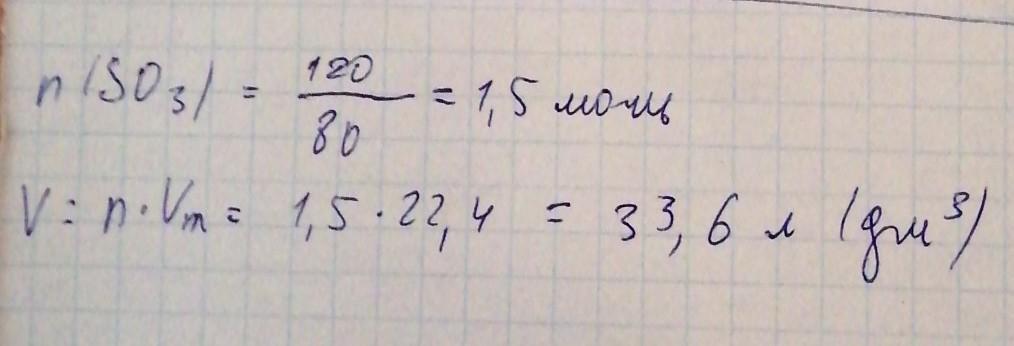 n(SO₃) = 120/80 = 1,5 моль
V = n·Vm = 1,5·22,4 = 33,6 л (дм³)